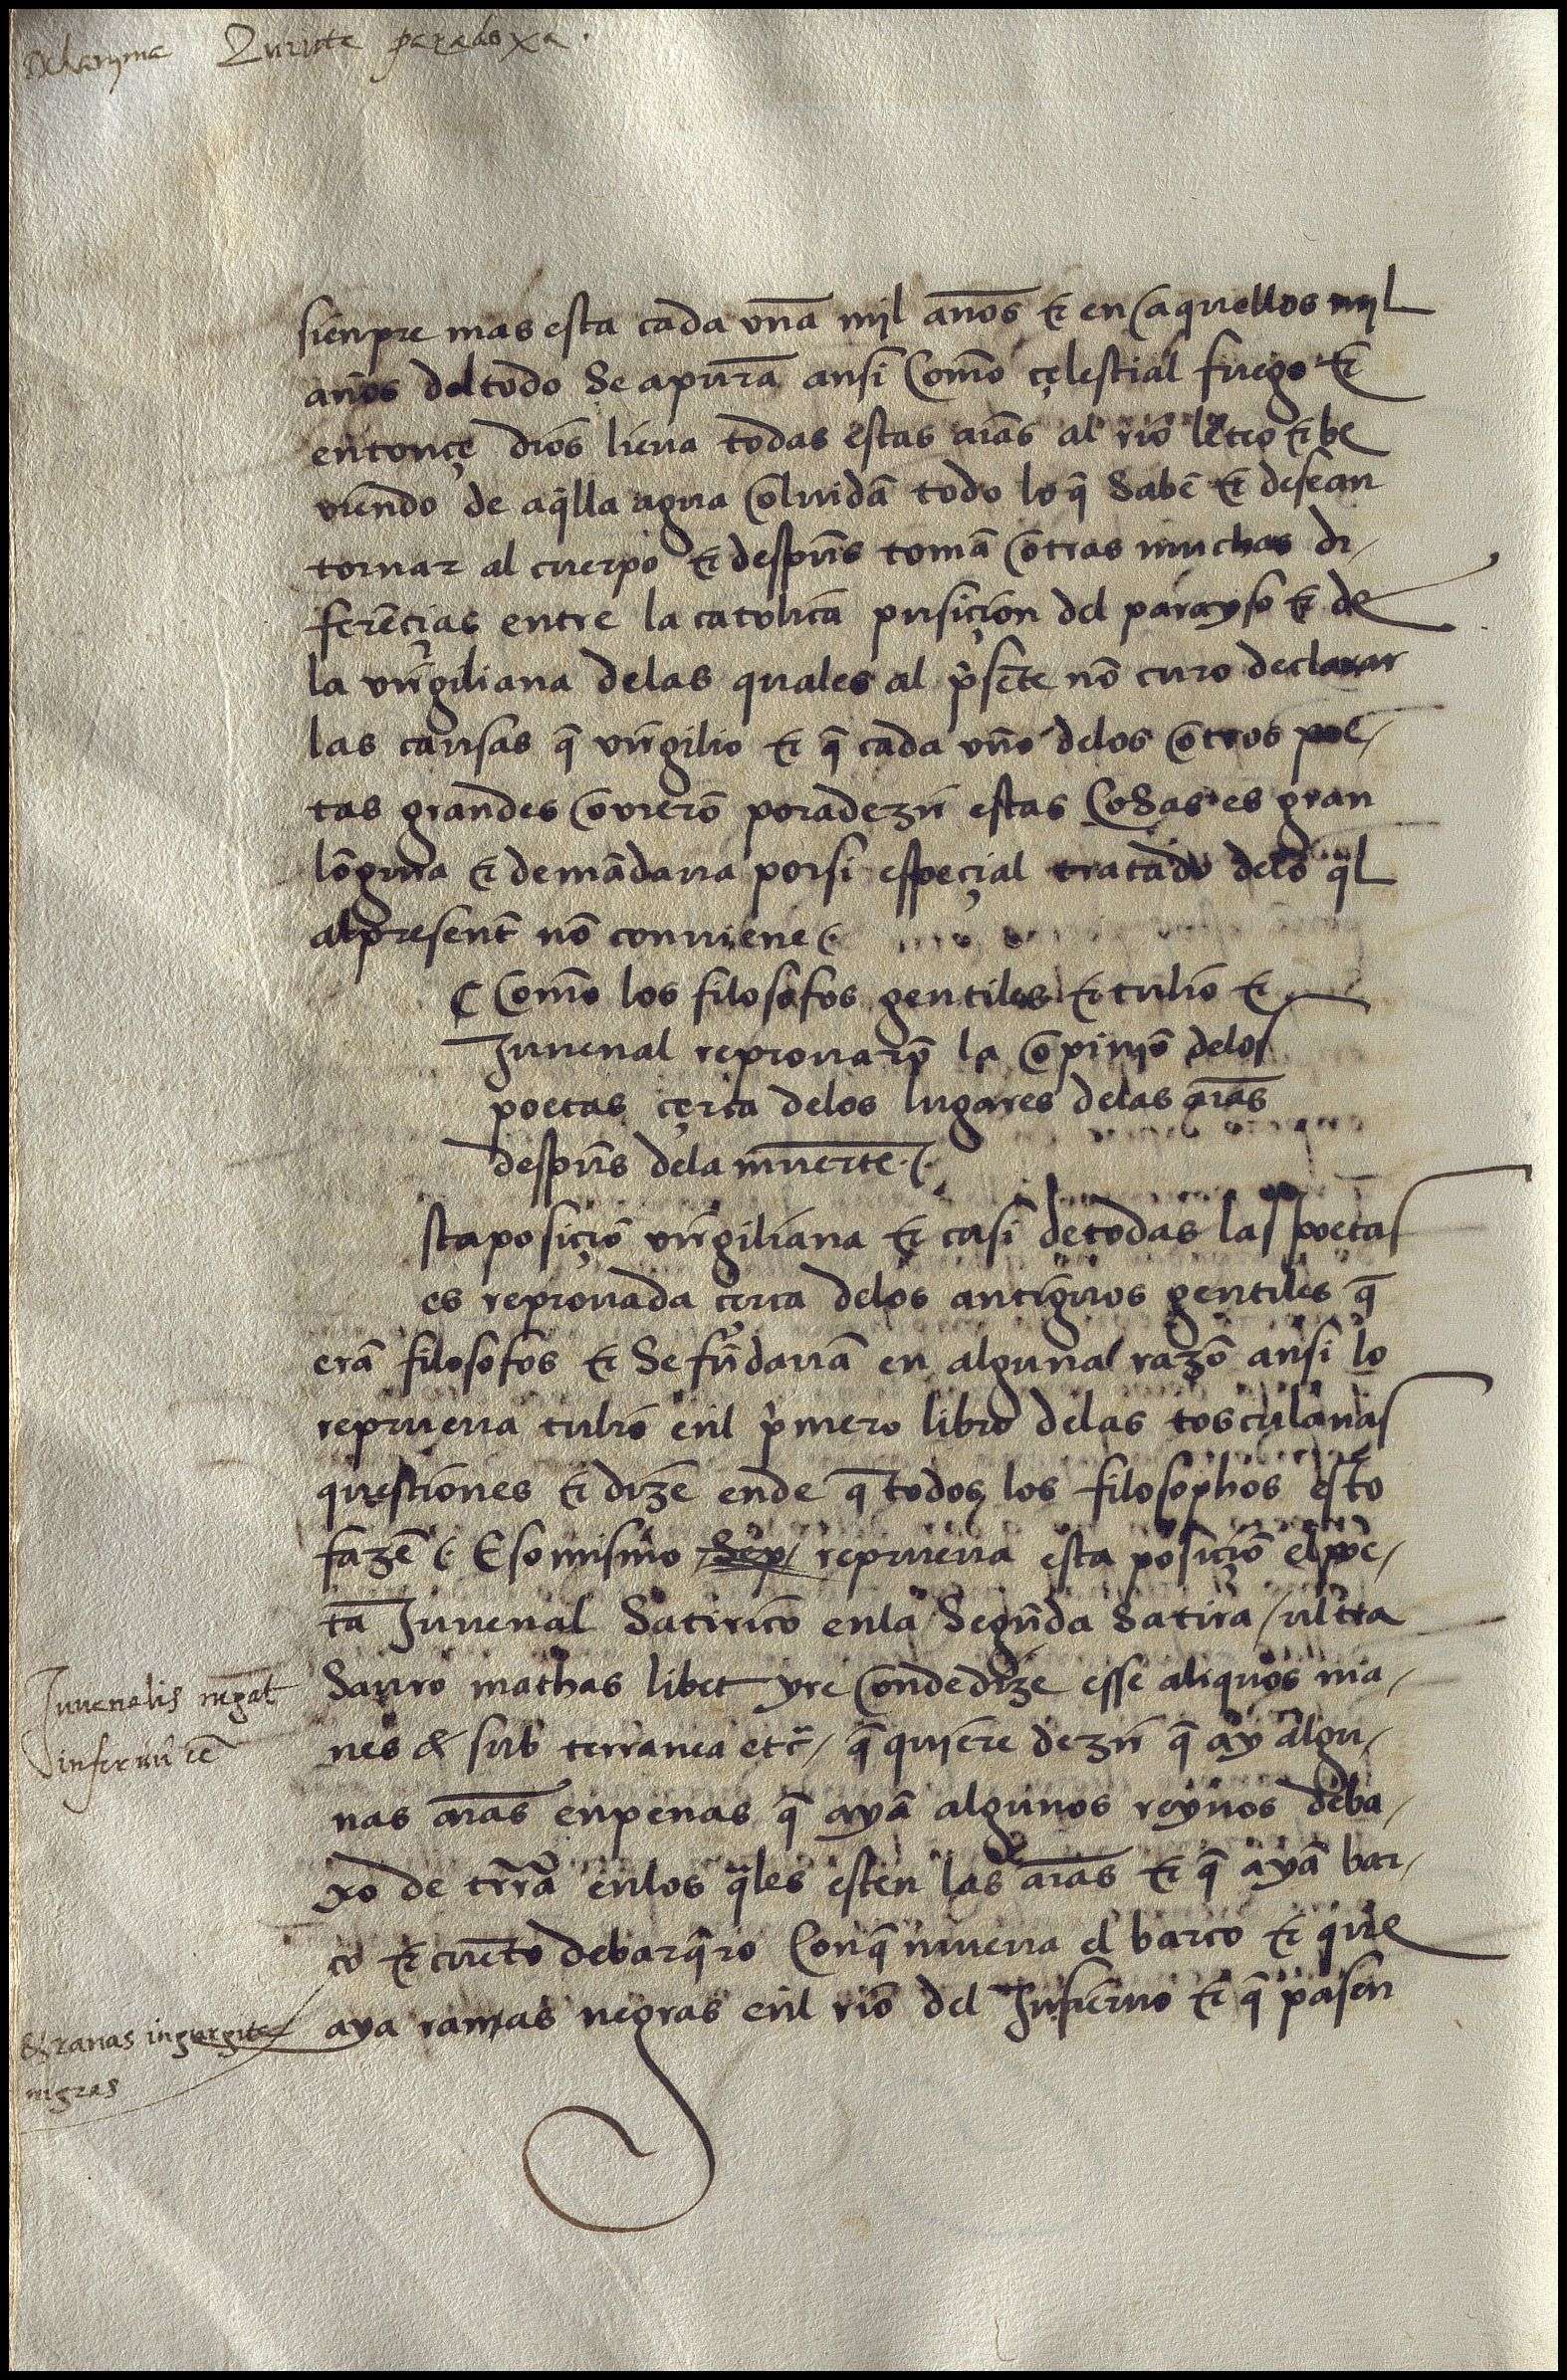 Del anyma Quinta paradoxa.
sienpre mas esta cada vna mjl anos & en aquellos mjl
años del todo Se apura ansi Como çelestial fuego &
entonçe dios lieua todas estas aı̃as al rio leteo & be
viendo de aq̃lla agua oluidã todo lo q̃ Sabẽ & desean
tornar al cuerpo & despũs tomã otras muchas di/
ferẽçias entre la catolica pusiçion del parayso & de
la virgiliana delas quales al p̃sẽte nõ curo declarar
las causas q̃ virgilio & q̃ cada vno delos otros poe/
tas grandes ouierõ pora dezir estas Cosas es gran
lõgura & demãdaua por si espeçial tratado delo q̃l
al present̃ nõ conuiene
¶ Como los filosofos gentiles & tulio &
Juuenal reprouarõ la opiniõ delos
poetas çerca delos lugares delas aı̃as
despũs dela muerte
sta posiçiõ virgiliana & casi de todas las poetas
es reprouada çerca delos antiguos gentiles q̃
erã filosofos & Se fũdauã en alguna razõ ansi lo
reprueua tulio enl p̃mero libro delas tosculanas
questiones & dize ende q̃ todos los filosophos esto
fazẽ Eso mismo Rep reprueua esta posiçiõ el poe/
ta Juuenal Satirico enla Segũda Satira / ultra
Sauro mathas libet yre onde dize esse aliquos ma/
nes & sub terranea etc̃ / q̃ quiere dezir q̃ ay algu/
nas aı̃as en penas q̃ ayã algunos reynos deba/
xo de tr̃ra enlos q̃les esten las aı̃as & q̃ ayã bar/
co & cuẽto de barq̃ro Con q̃ mueua el barco & que
aya ranas negras enl rio del Infierno & q̃ pasen
Juuenalis negat
infernũ
& ranas in gurgite
nigras